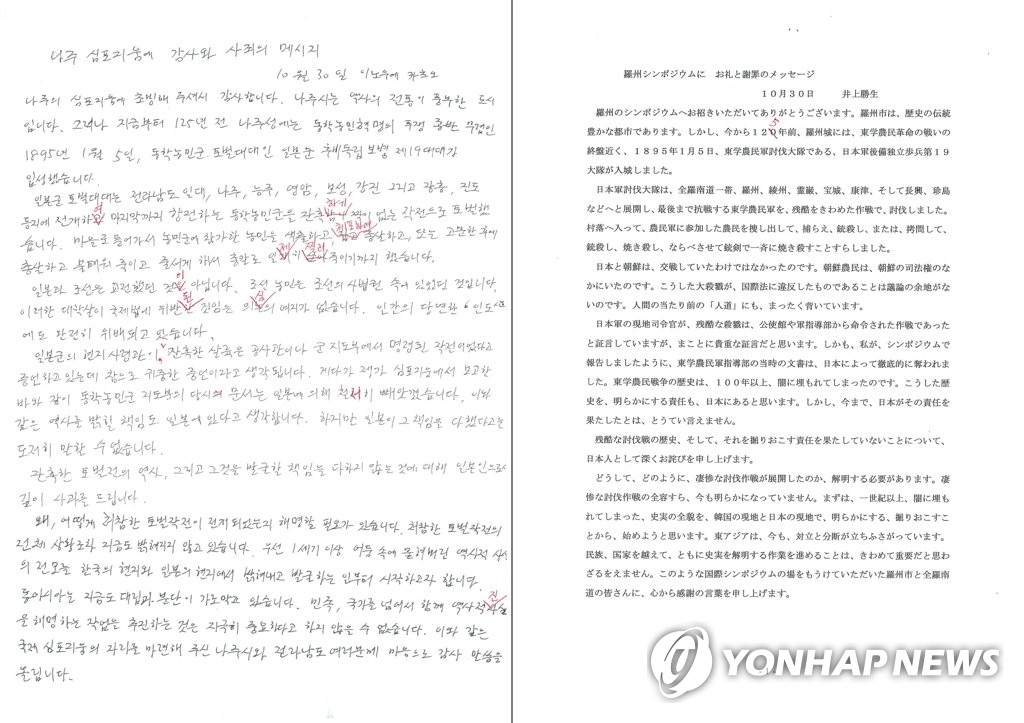 나주 심포지움에 감사와 사죄의 메시지
10월 30일 이노우에 카츠오
나주의 심포지움에 초빙해 주셔서 감사합니다. 나주시는 역사의 전통이 풍부한 도시
입니다. 그러나 지금부터 125년 전 나주성에는 동학농민혁명의 투쟁 종반 무렵인
1895년 1월 5일, 동학농민군 토벌대대인 일본군 후비독립보병 제19대대가
입성했습니다.
일본군 토벌대대는 전라남도 일대, 나주, 능주, 영암, 보성, 강진 그리고 장흥, 진도
등지에 전개하여 마지막까지 항전하는 동학농민군을 잔혹하게 짝이 없는 작전으로 토벌했
습니다. 마을로 들어가서 농민군에 참가한 농민을 색출하고 체포하여 총살하고, 또는 고문한 후에
총살하고 불태워 죽이고 줄세게 하여 총칼로 일제히 찔러 죽이기까지 했습니다.
일본과 조선은 교전했던 것이 아닙니다. 조선 농민은 조선의 사법권 속에 있었던 것입니다.
이러한 대학살이 국제법에 위반된 것임은 의심의 여지가 없습니다. 인간의 당연한 "인도"
에도 완전히 위배되고 있습니다.
일본군의 현지 사령관이, 잔혹한 살륙은 공사관이나 군 지도부에서 명령된 작전이었다고
증언하고 있는데 참으로 귀중한 증언이라고 생각됩니다. 게다가 제가 심포지움에서 보고한
바와 같이 동학농민군 지도부의 당시의 문서는 일본에 의해 철저히 빼앗겼습니다. 이와
같은 역사를 밝힐 책임도 일본에 있다고 생각합니다. 하지만 일본이 그 책임을 다했다고는
도저히 말할 수 없습니다.
잔혹한 토벌전의 역사, 그리고 그것을 발굴한 책임을 다하지 않는 것에 대해 일본인으로서
깊이 사과를 드립니다.
왜, 어떻게 처참한 토벌작전이 전개되었는지 해명할 필요가 있습니다. 처참한 토벌작전의
전체 상황조차 지금도 밝혀지지 않고 있습니다. 우선 1세기 이상 어둠 속에 묻혀버린 역사적 사실
의 전모를 한국의 현지와 일본의 현지에서 밝혀내고 발굴하는 일부터 시작하고자 합니다.
동아시아는 지금도 대립과 분단이 가로막고 있습니다. 민족, 국가를 넘어서 함께 역사적 진실
을 해명하는 작업을 추진하는 것은 지극히 중요하다고 하지 않을 수 없습니다. 이와 같은
국제 심포지움의 자리를 마련해 주신 나주시와 전라남도 여러분께 마음으로 감사 말씀을
올립니다.
羅州シンポジウムに お礼と謝罪のメッセージ
10月30日 井上勝生
羅州のシンポジウムへお招きいただいてありがとうございます。羅州市は、歴史の伝統
豊かな都市であります。しかし、今から125年前、羅州城には、東学農民革命の戦いの
終盤近く、1895年1月5日、東学農民軍討伐大隊である、日本軍後備独立歩兵第19
大隊が入城しました。
日本軍討伐大隊は、全羅南道一帯、羅州、綾州、霊巌、宝城、康津、そして長興、珍島
などへと展開し、最後まで抗戦する東学農民軍を、残酷をきわめた作戦で、討伐しました。
村落へ入って、農民軍に参加した農民を捜し出して、捕らえ、銃殺し、または、拷問して、
銃殺し、焼き殺し、ならべさせて銃剣で一斉に焼き殺すことすらしました。
日本と朝鮮は、交戦していたわけではなかったのです。朝鮮農民は、朝鮮の司法権のな
かにいたのです。こうした大殺戮が、国際法に違反したものであることは議論の余地がな
いのです。人間の当たり前の「人道」にも、まったく背いています。
日本軍の現地司令官が、残酷な殺戮は、公使館や軍指導部から命令された作戦であった
と証言していますが、まことに貴重な証言だと思います。しかも、私が、シンポジウムで
報告しましたように、東学農民軍指導部の当時の文書は、日本によって徹底的に奪われま
した。東学農民戦争の歴史は、100年以上、闇に埋もれてしまったのです。こうした歴
史を、明らかにする責任も、日本にあると思います。しかし、今まで、日本がその責任を
果したとは、とうてい言えません。
残酷な討伐戦の歴史、そして、それを掘りおこす責任を果していないことについて、
日本人として深くお詫びを申し上げます。
どうして、どのように、凄惨な討伐作戦が展開したのか、解明する必要があります。凄
惨な討伐作戦の全容すら、今も明らかになっていません。まずは、一世紀以上、闇に埋も
れてしまった、史実の全貌を、韓国の現地と日本の現地で、明らかにする、掘りおこすこ
とから、始めようと思います。東アジアは、今も、対立と分断が立ちふさがっています。
民族、国家を越えて、ともに史実を解明する作業を進めることは、きわめて重要だと思わ
ざるをえません。このような国際シンポジウムの場をもうけていただいた羅州市と全羅南
道の皆さんに、心から感謝の言葉を申し上げます。
YONHAP NEWS